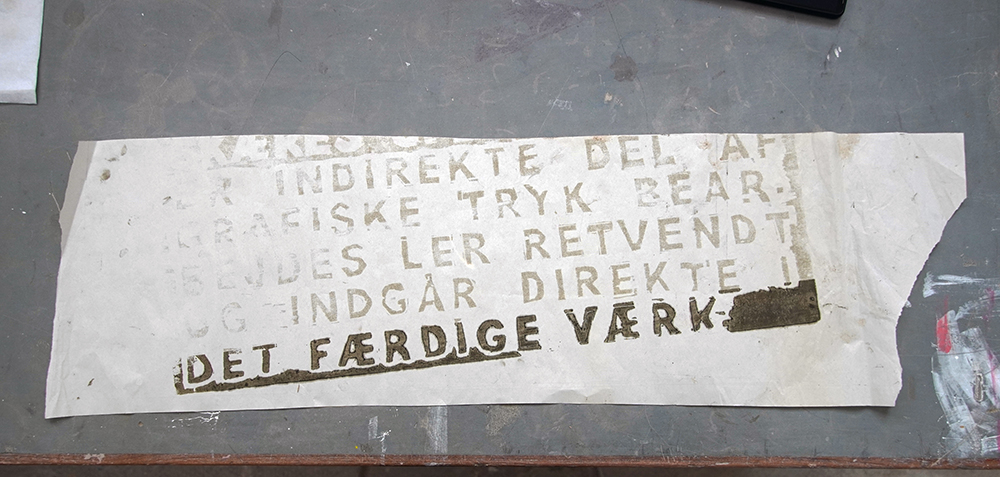 ER INDIREKTE DEL AF
GRAFISKE TRYK BEAR-
BEJDES LER RETVENDT
OG INDGÅR DIREKTE I
DET FÆRDIGE VÆRK